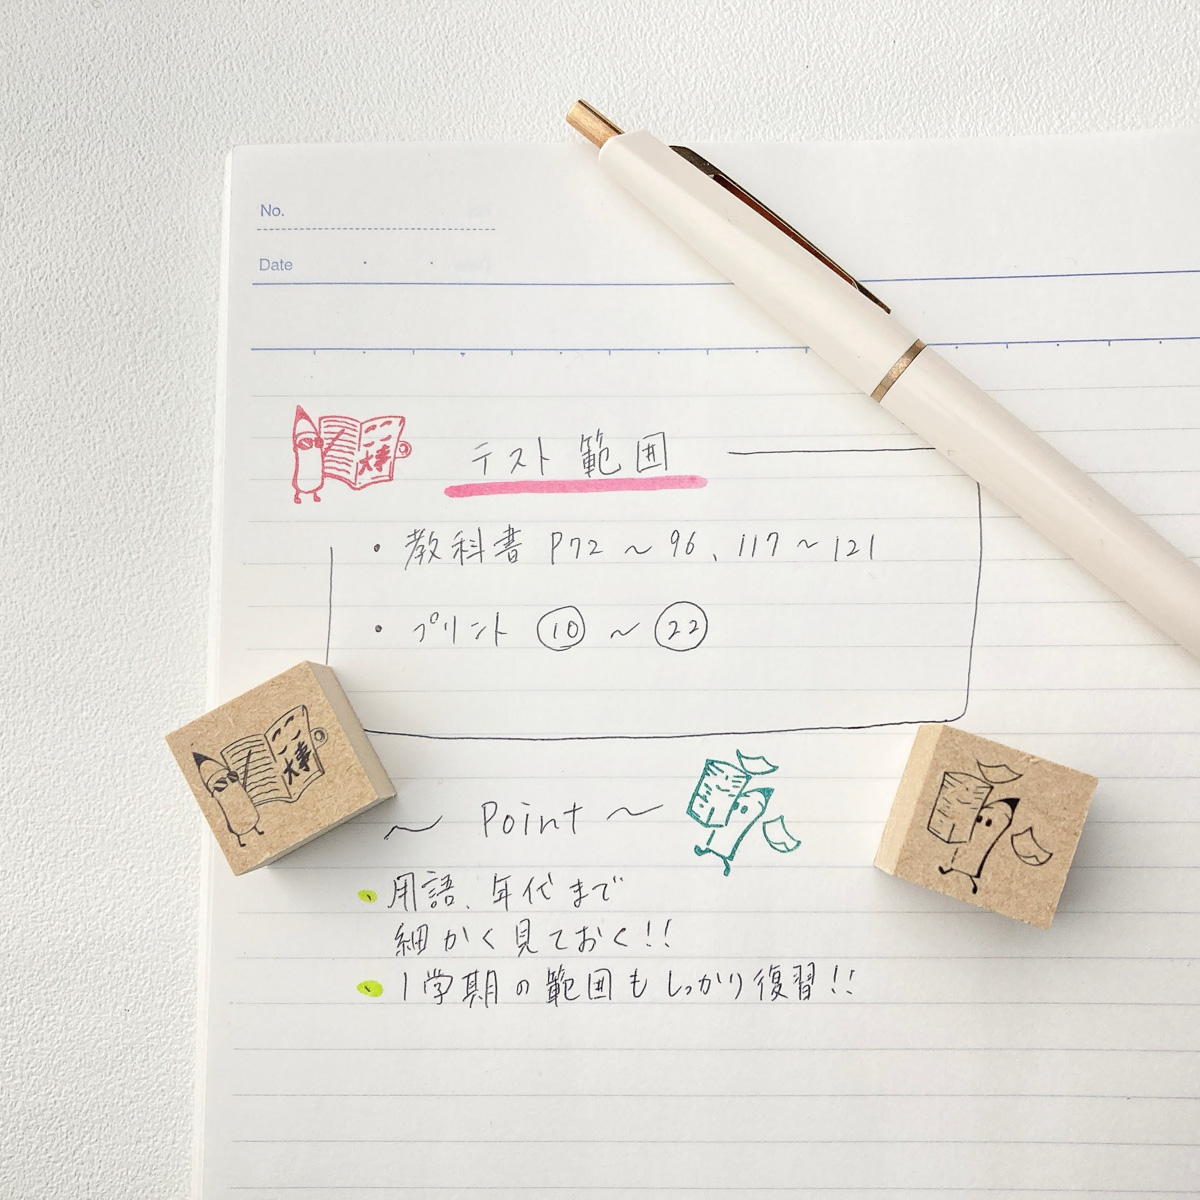 No.
Date
ここ
大事
テスト範囲
・教科書 P72 ～ 96、117 ～ 121
・プリント ⑩ ～ ㉒
ここ
大事
～ Point ～
用語、年代まで
細かく見ておく!!
1学期の範囲もしっかり復習!!